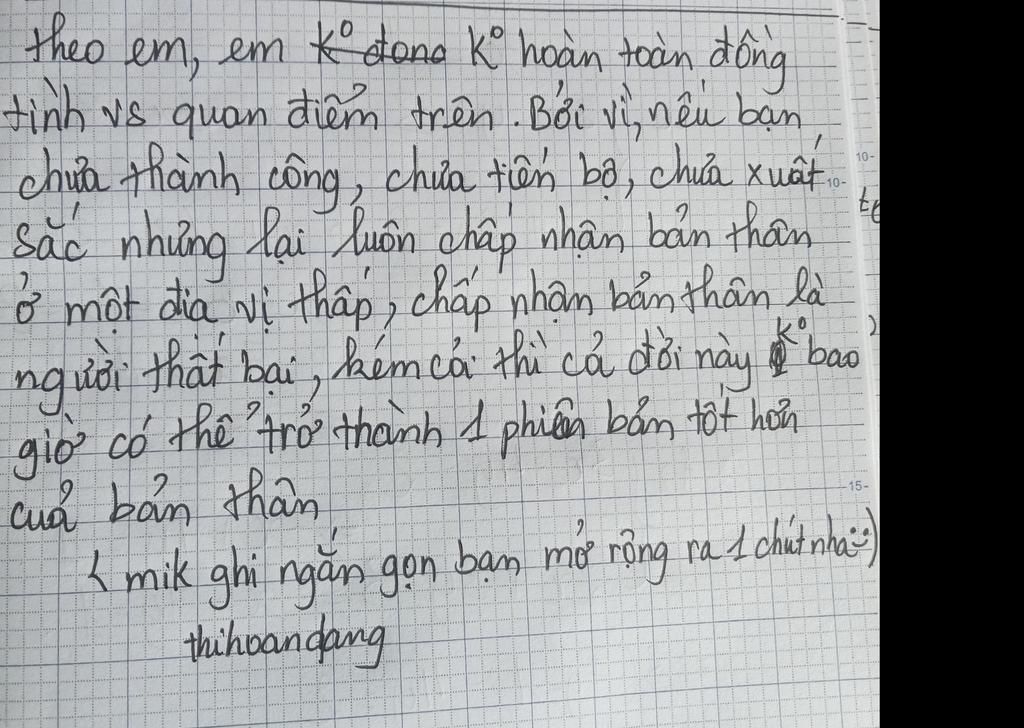 theo em, em k° đong k° hoàn toàn đồng
tình vs quan điểm trên. Bởi vì, nếu bạn
chưa thành công, chưa tiến bộ, chưa xuất
sắc nhưng lại luôn chấp nhận bản thân
ở một địa vị thấp, chấp nhận bản thân là
người thất bại, kém cỏi thì cả đời này k° bao
giờ có thể trở thành 1 phiên bản tốt hơn
của bản thân
( mik ghi ngắn gọn bạn mở rộng ra 1 chút nha :))
thihoandang
10-
10-
15-